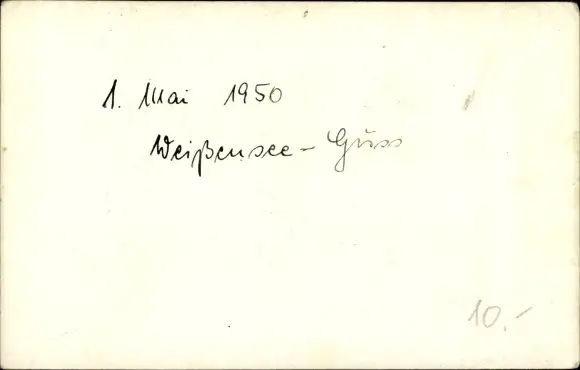 1. Mai 1950
Weißensee - Guss
10.-